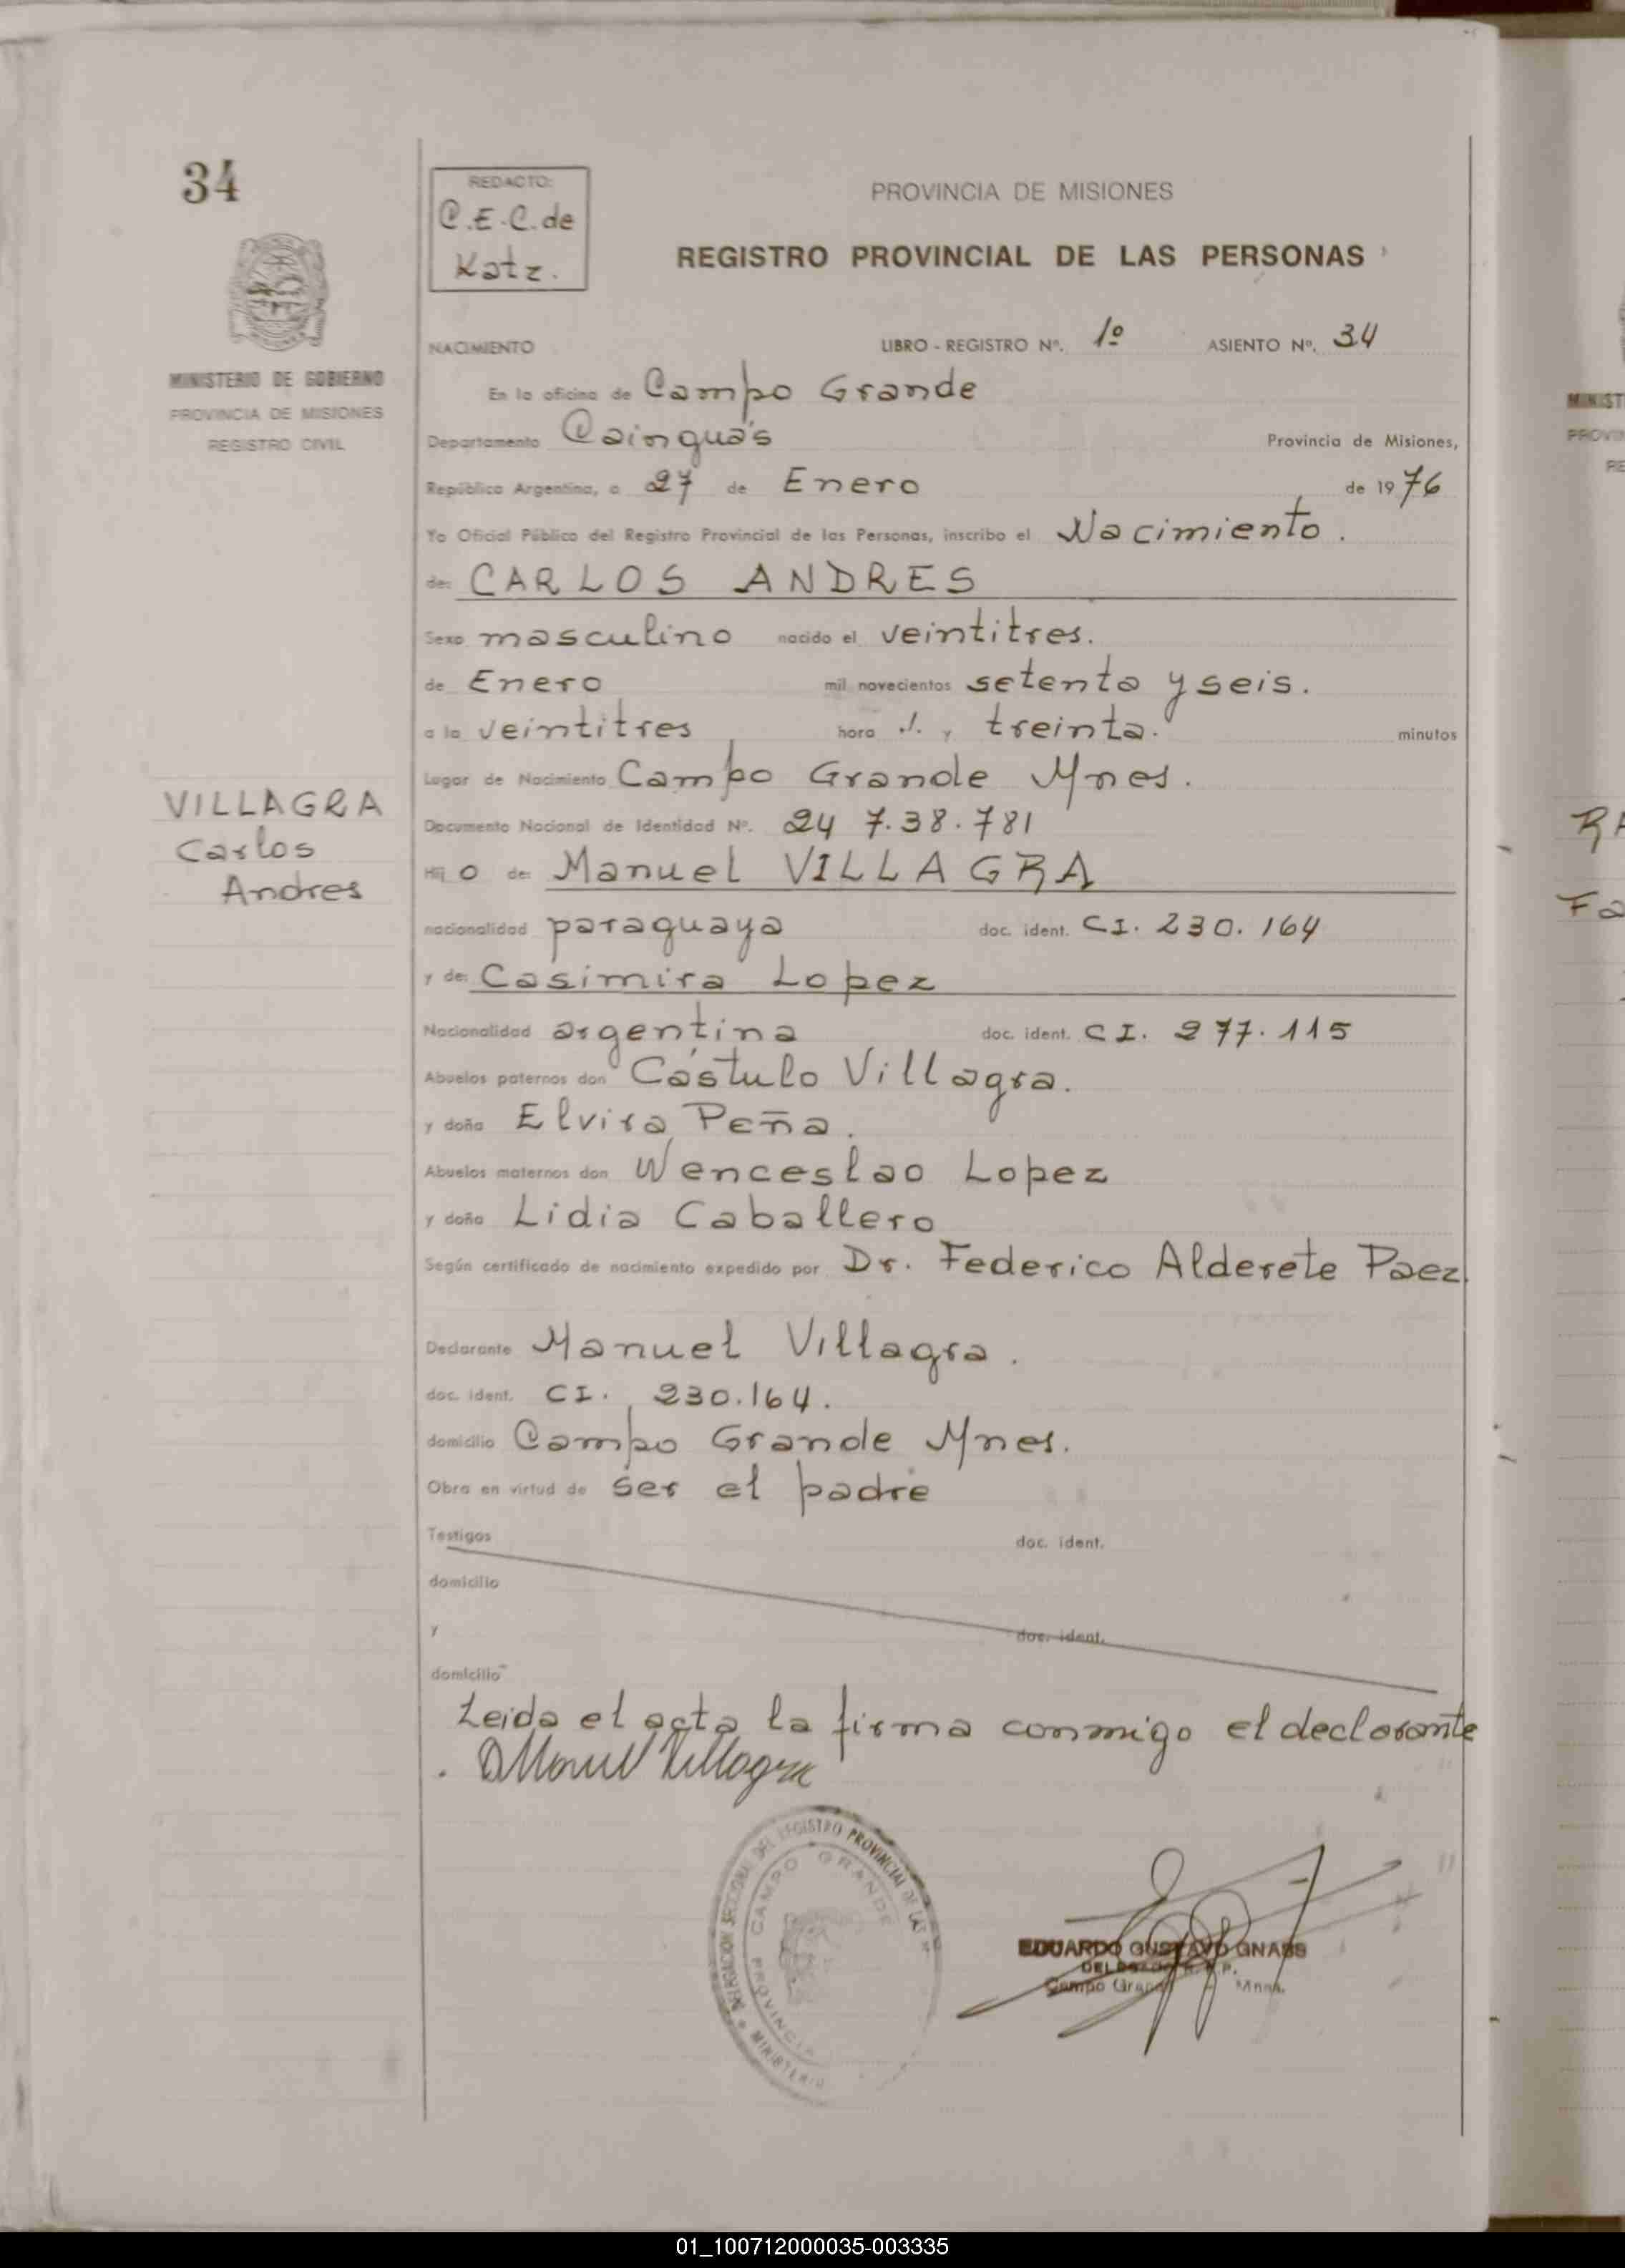 34
REDACTO:
C.E.C. de
Katz.
PROVINCIA DE MISIONES
REGISTRO PROVINCIAL DE LAS PERSONAS
MINISTERIO DE GOBIERNO
PROVINCIA DE MISIONES
REGISTRO CIVIL
NACIMIENTO LIBRO - REGISTRO Nº. 1º ASIENTO Nº. 34
En la oficina de Campo Grande
Departamento Cainguás Provincia de Misiones,
República Argentina, a 27 de Enero de 1976
Yo Oficial Público del Registro Provincial de las Personas, inscribo el Nacimiento.
de: CARLOS ANDRES
Sexo masculino nacido el veintitres.
de Enero mil novecientos setenta y seis.
a la veintitres hora s. y treinta. minutos
Lugar de Nacimiento Campo Grande Mnes.
VILLAGRA
Carlos
Andres
Documento Nacional de Identidad Nº. 24 7.38.781
Hij o de: Manuel VILLAGRA
nacionalidad paraguaya doc. ident. CI. 230.164
y de: Casimira Lopez
Nacionalidad argentina doc. ident. CI. 277.115
Abuelos paternos don Cástulo Villagra.
y doña Elvira Peña.
Abuelos maternos don Wenceslao Lopez
y doña Lidia Caballero
Según certificado de nacimiento expedido por Dr. Federico Alderete Paez.
Declarante Manuel Villagra.
doc. ident. CI. 230.164.
domicilio Campo Grande Mnes.
Obra en virtud de ser el padre
Testigos doc. ident.
domicilio
y doc. ident.
domicilio
Leida el acta la firma conmigo el declarante
Manuel Villagra
DELEGACION SECCIONAL DEL REGISTRO PROVINCIAL DE LAS
CAMPO GRANDE
PROVINCIA
MINISTERIO
EDUARDO GUSTAVO GNASS
Campo Grande Mnes.
MINIST
PROVIN
RE
RA
Fa
01_100712000035-003335